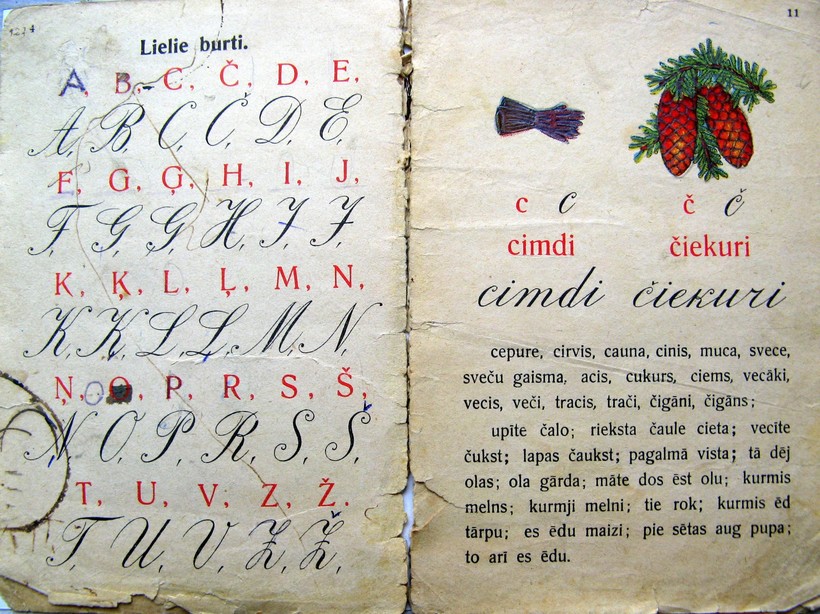 1234
Lielie burti.
A, B, C, Č, D, E,
A, B, C, Č, D, E,
F, G, Ģ, H, I, J,
F, G, Ģ, H, I, J,
K, Ķ, L, Ļ, M, N,
K, Ķ, L, Ļ, M, N,
Ņ, O, P, R, S, Š,
Ņ, O, P, R, S, Š,
T, U, V, Z, Ž.
T, U, V, Z, Ž.
11
c c č č
cimdi čiekuri
cimdi čiekuri
cepure, cirvis, cauna, cinis, muca, svece,
sveču gaisma, acis, cukurs, ciems, vecāki,
vecis, veči, tracis, trači, čigāni, čigāns;
upīte čalo; rieksta čaule cieta; vecīte
čukst; lapas čaukst; pagalmā vista; tā dēj
olas; ola gārda; māte dos ēst olu; kurmis
melns; kurmji melni; tie rok; kurmis ēd
tārpu; es ēdu maizi; pie sētas aug pupa;
to arī es ēdu.